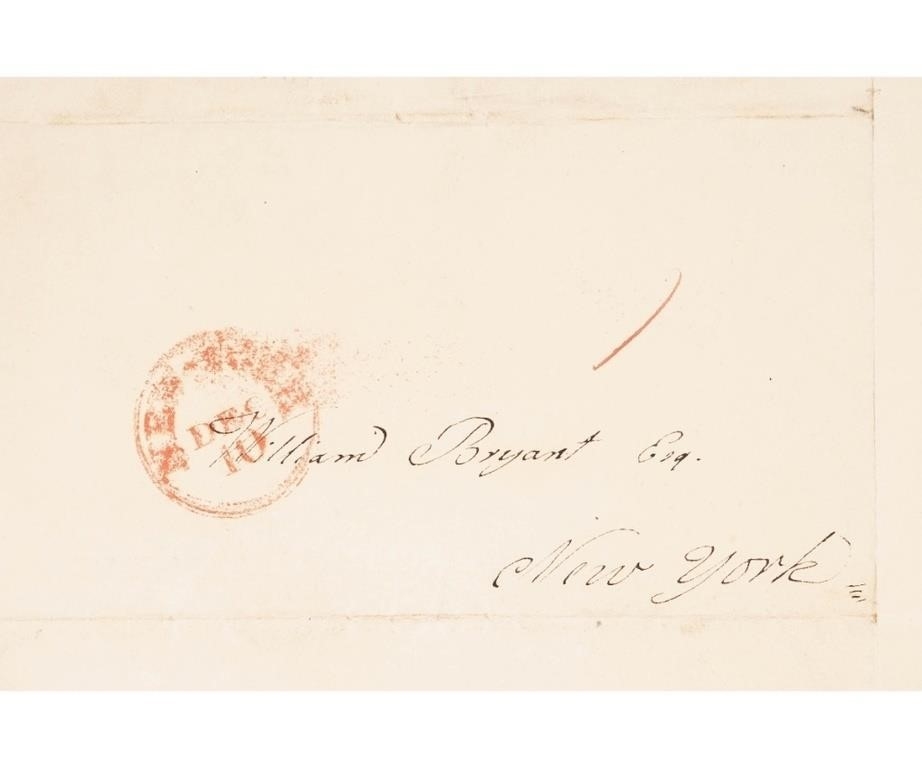 DEC
10
William Bryant Esq.
New York